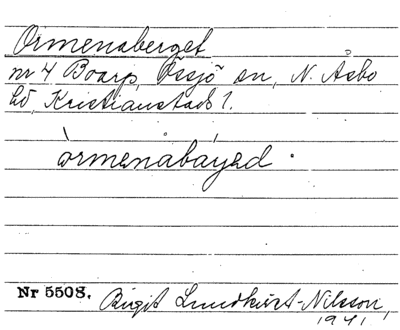 Ormenaberget
nr 4 Boarp, Össjö sn, N. Åsbo
hd, Kristianstads l.
òrmenåbáyəd.
Nr 5508. Birgit Lundkvist-Nilsson,
1941.